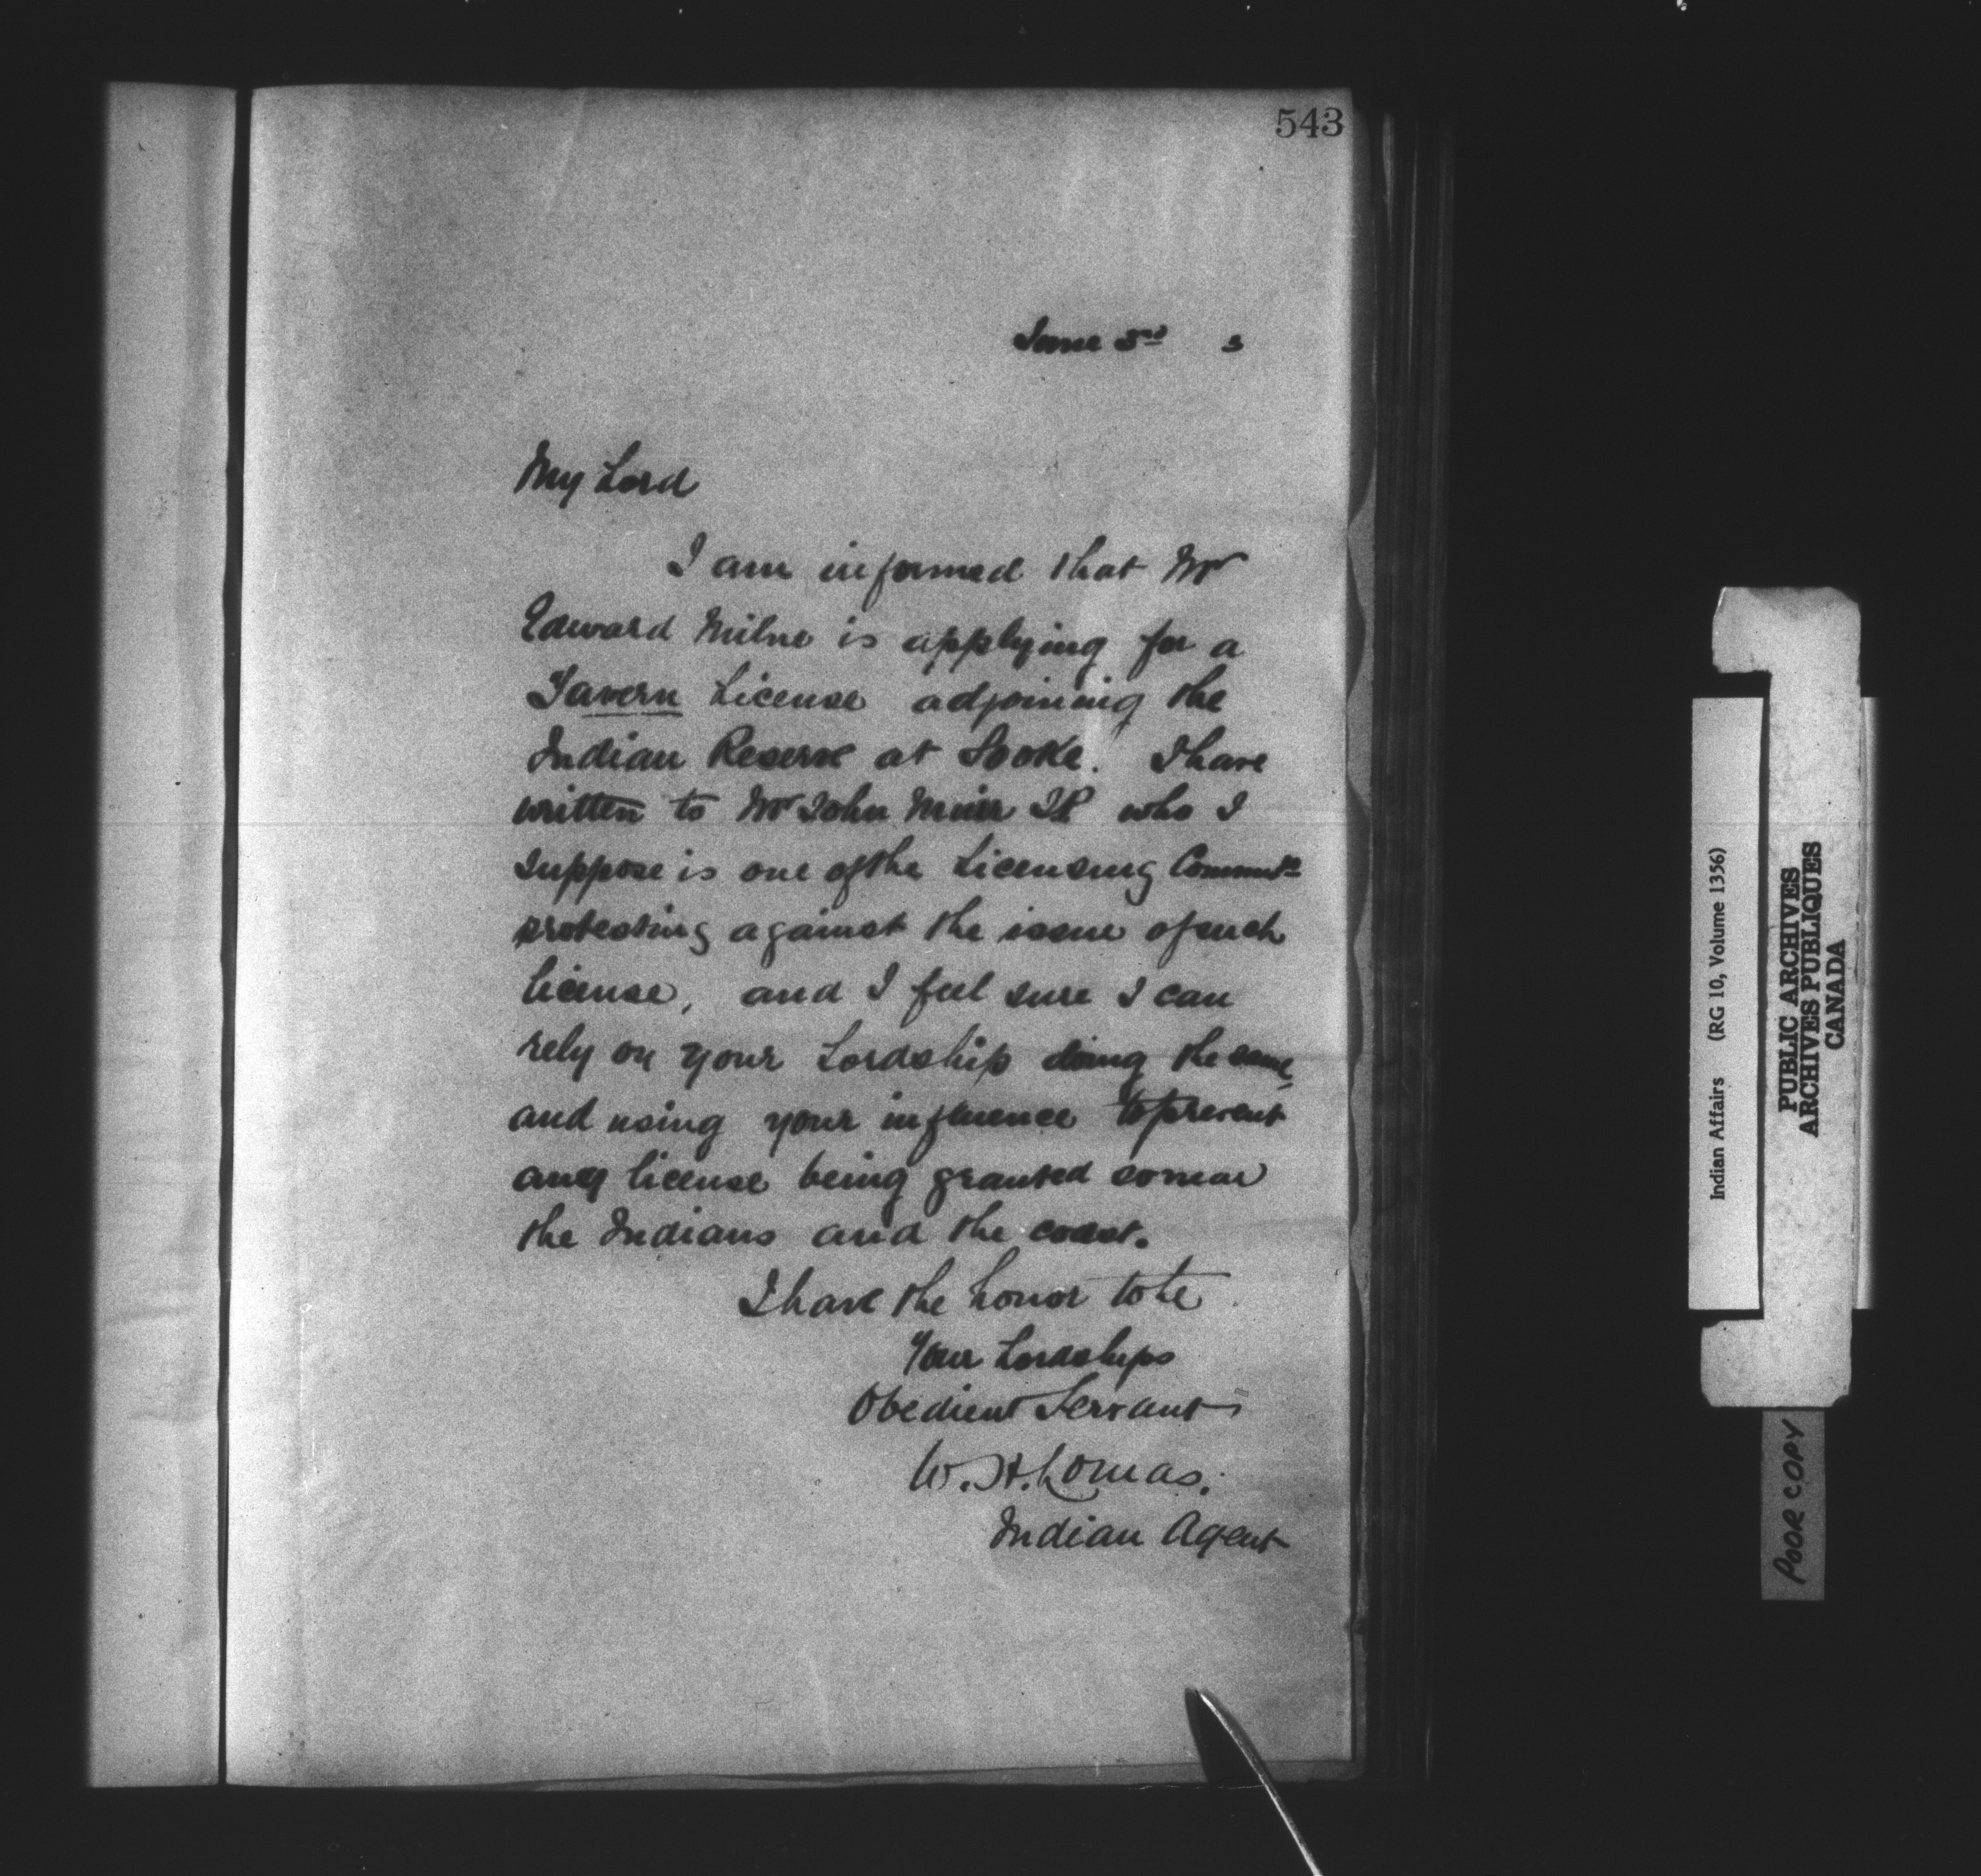 543
June 3rd 3
My Lord
I am informed that Mr
Edward Milne is applying for a
Tavern License adjoining the
Indian Reserve at Sooke. I have
written to Mr John Muir JP who I
suppose is one of the Licensing Commrs
protesting against the issue of such
license, and I feel sure I can
rely on your Lordship doing the same
and using your influence to prevent
any license being granted so near
the Indians and the coast.
I have the honor to be
Your Lordships
Obedient Servant
W. H. Lomas.
Indian Agent
Indian Affairs (RG 10, Volume 1356)
PUBLIC ARCHIVES
ARCHIVES PUBLIQUES
CANADA
POOR COPY